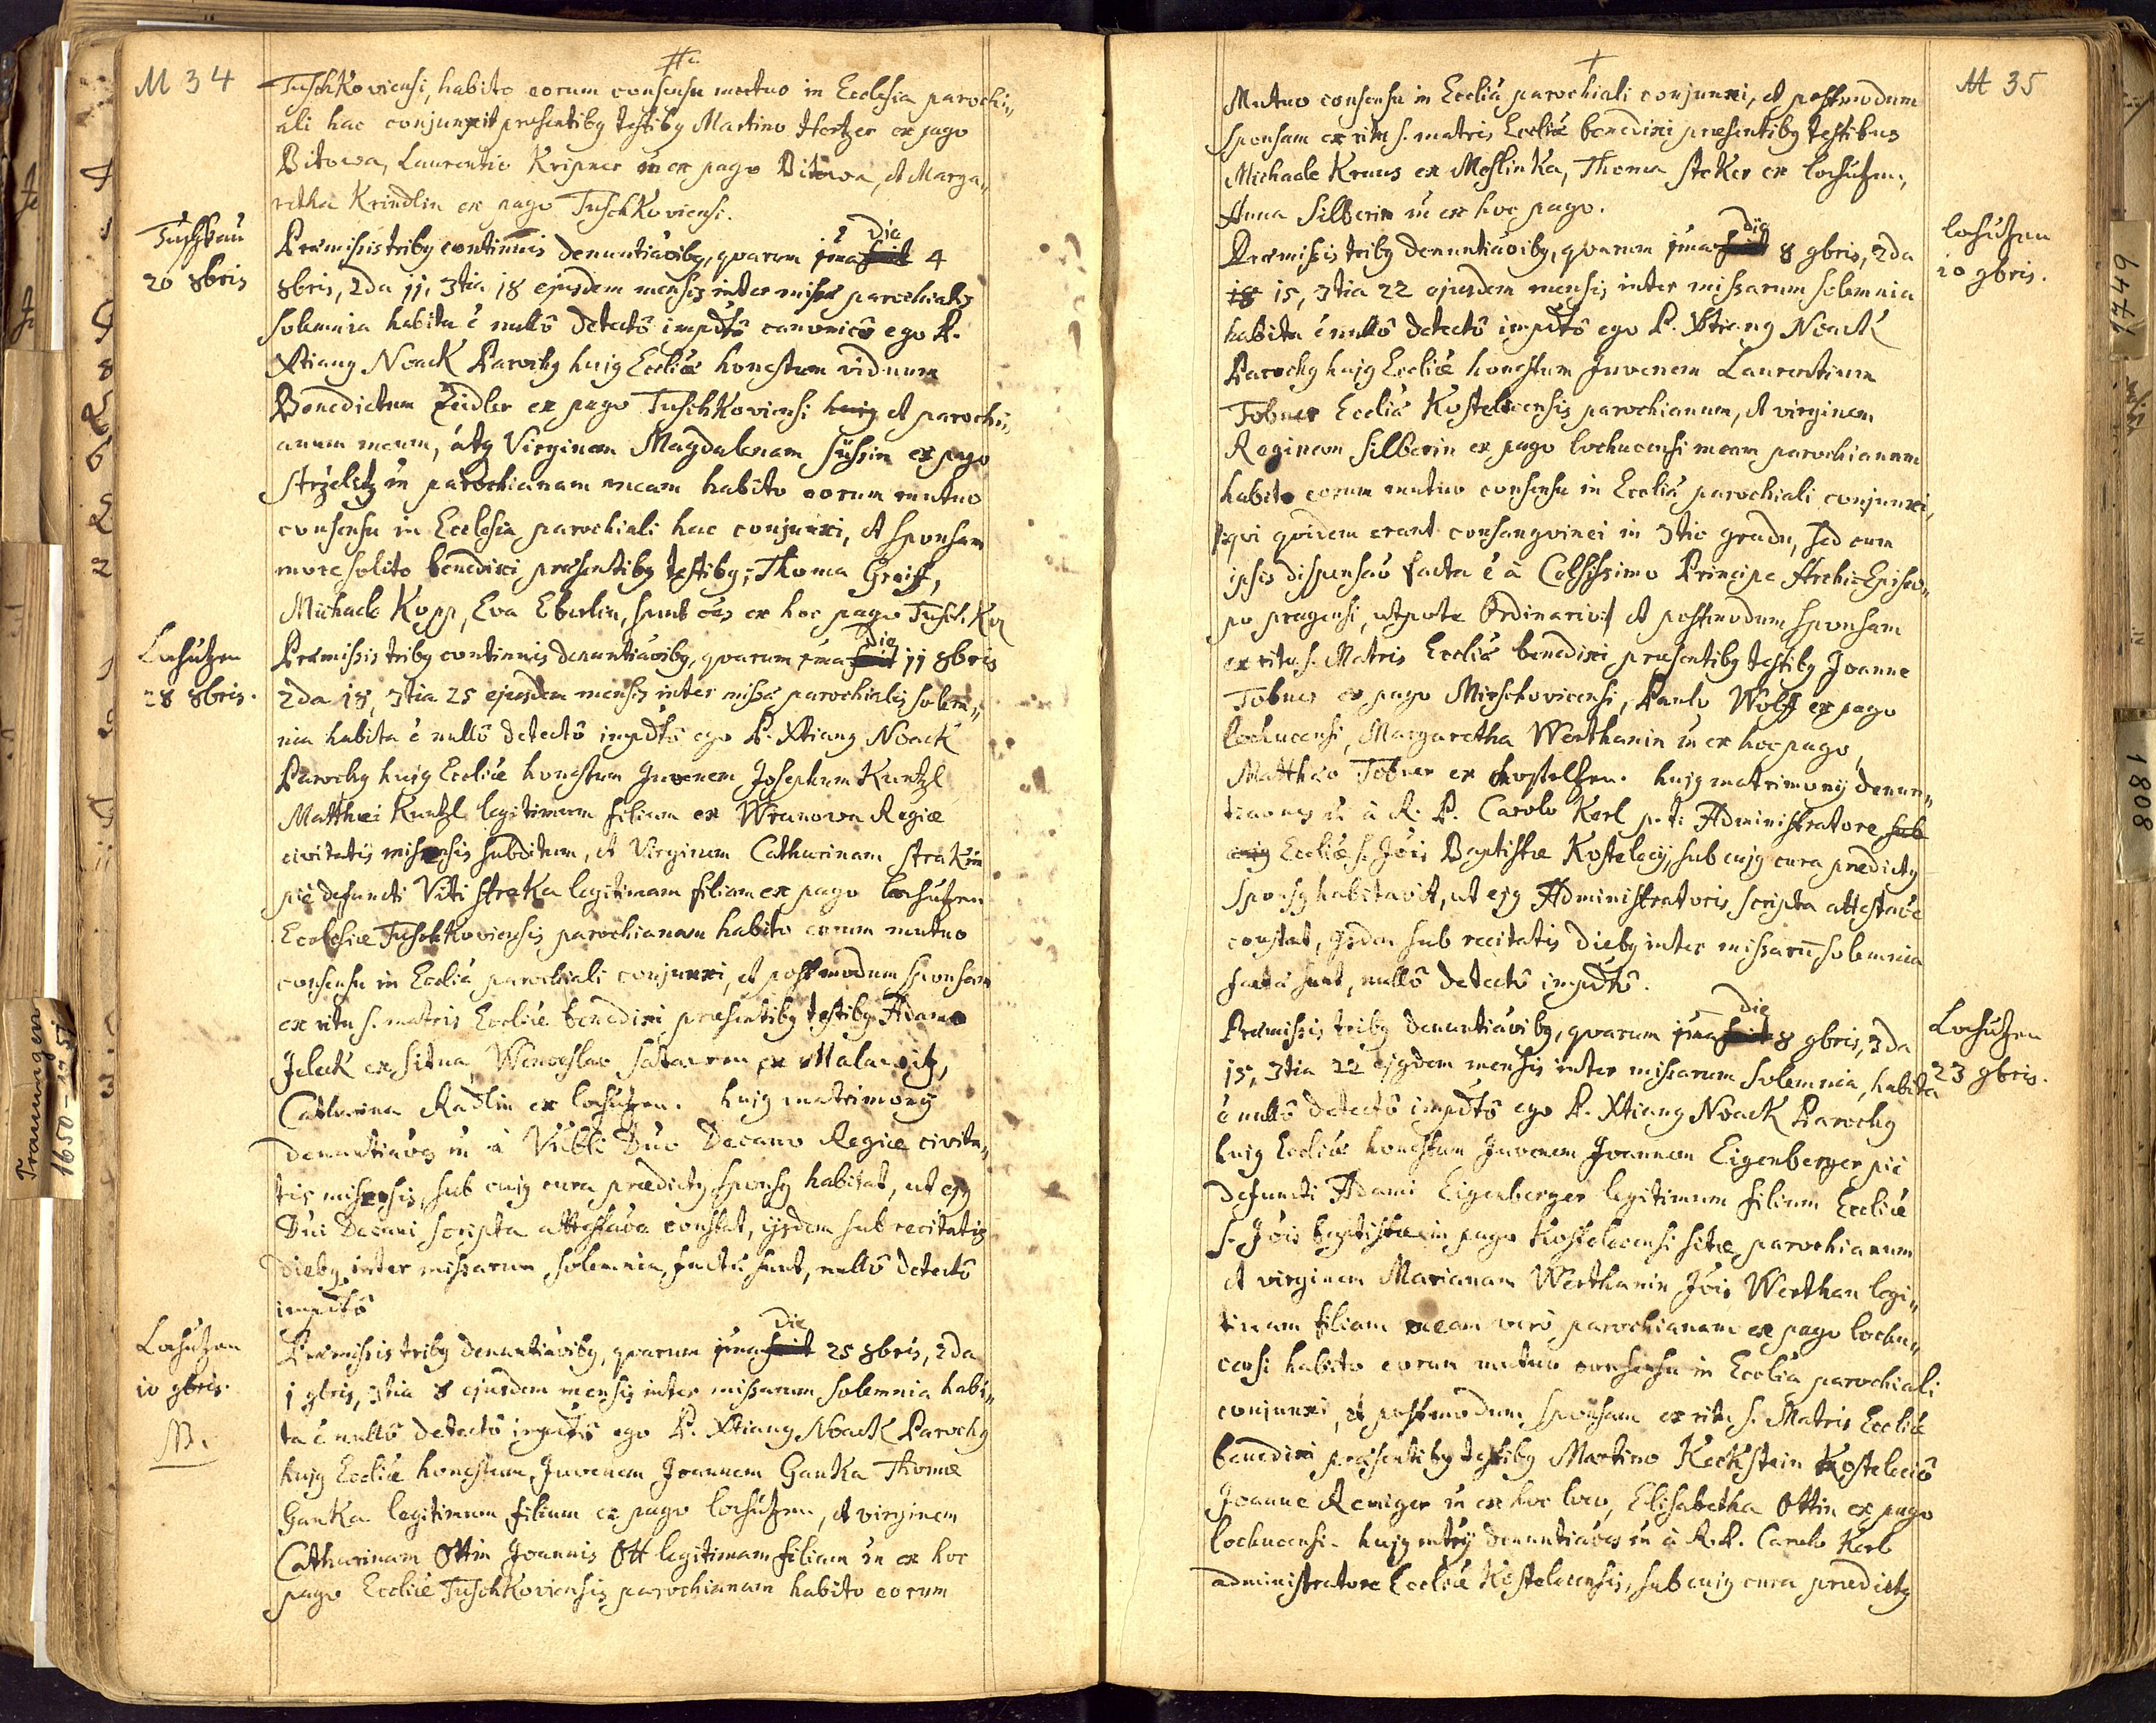 M 34
Tuschkoviensi, habito eorum consensu mutuo in Ecclesia parochi„
ali hac conjunxit praesentibg testibg Martino Hertzer ex pago
Bitowa, Laurentio Kripner ex pago Bitowa, et Marga„
retha Krindlin ex pago Tuschkoviensi.
Tuschkau
20 8bris
Praemissis tribg continuis denuntiaõibg, quarum 1ma die 4
8bris, 2da 11, 3tia 18 ejusdem mensis inter missae parochialis
solemnia habita ẽ nullô detectô impdtô canonicô ego P.
Xtiang Noack Parochg hujg Eccliae honestum viduum
Benedictum Zeidler ex pago Tuschkoviensi hujg et parochi„
anum meum, atq Virginem Magdalenam Süssin ex pago
Strzelitz parochianam meam habito eorum mutuo
consensu in Ecclesia parochiali hac conjunxi, et sponsam
more solito benedixi praesentibg testibg; Thoma Greiff,
Michaele Kopp, Eva Eberlin, sunt oẽs ex hoc pago Tuschk.
Lochutzen
28 8bris.
Praemissis tribg continuis denuntiaõibg, quarum 1ma die 11 8bris
2da 18, 3tia 25 ejusdem mensis inter missae parochialis solem„
nia habita ẽ nullô detectô impdtô ego P. Xtiang Noack
Parochg hujg Eccliae honestum Juvenem Josephum Kuntzl
Matthaei Kuntzl legitimum filium ex Wranowa Regiae
civitatis misensis subditum, et Virginem Catharinam Strakin
piè defuncti Viti Straka legitimam filiam ex pago Lochutzen
Ecclesiae Tuschkoviensis parochianam habito eorum mutuo
consensu in Ecclia parochiali conjunxi, et postmodum sponsam
ex ritu s. matris Eccliae benedixi praesentibg testibg Adamo
Jelek ex Sitna, Wenceslao ex Malawitz,
Catharina Radlin ex Lochutzen. hujg matrimonij
denuntiaões à Dno Decano Regiae civita„
tis misensis, sub cujg cura praedictg sponsg habitat, ut ejg
Dni Decani scripta attestaõe constat, ijsdem sub recitatis
diebg inter missarum solemnia factae sunt, nullô detectô
impdtô
Lochutzen
10 9bris.
NB.
Praemissis tribg denuntiaõibg, quarum 1ma die 25 8bris, 2da
1 9bris, 3tia 8 ejusdem mensis inter missarum solemnia habi„
ta ẽ nullô detectô impdtô ego P. Xtiang Noack Parochg
hujg Eccliae honestum Juvenem Joannem Ganka Thomae
Ganka legitimum filium ex pago Lochutzen, et virginem
Catharinam Ottin Joannis Ott legitimam filiam ex hoc
pago Eccliae Tuschkoviensis parochianam habito eorum
M 35
Mutuo consensu in Ecclia parochiali conjunxi, et postmodum
sponsam ex ritu s. matris Eccliae benedixi praesentibg testibus
Michaele Kraus ex Meslinka, Thoma Steker ex Lochutzen,
Anna Silberin ex hoc pago.
Lochutzen
10 9bris.
Praemissis tribg denuntiaõibg, quarum 1ma die 8 9bris, 2da
15, 3tia 22 ejusdem mensis inter missarum solemnia
habita ẽ nullô detectô impdtô ego P. Xtiang Noack
Parochg hujg Eccliae honestum Juvenem Laurentium
Tobner Eccliae Kostelecensis parochianum, et virginem
Reginam Silberin ex pago Lochucensi meam parochianam
habito eorum mutuo consensu in Ecclia parochiali conjunxi,
qvi qvidem erant consangvinei in 3tio gradu, sed cum
ipsis dispensaõ facta ẽ à Celsissimo Principe Archi-Episco„
po pragensi, utpote Ordinario et postmodum sponsam
ex ritu s. Matris Eccliae benedixi praesentibg testibg Joanne
Tobner ex pago Mirschovicensi, Paulo Wolff ex pago
Lochucensi, Margaretha Werthanin ex hoc pago,
Matthaeo Tobner ex Kostelzen. hujg matrimonij denun„
tiaones à R. P. Carolo Kerl p. t. Administratore
Eccliae s. Jois Baptistae Kostelecij, sub cujg cura praedictg
sponsg habitavit, ut ejg Administratoris scripta attestaõe
constat, ijsdem sub recitatis diebg inter missarũ solemnia
factae sunt, nullô detectô impdtô.
Lochutzen
23 9bris.
Praemissis tribg denuntiaõibg, quarum 1ma die 8 9bris, 2da
15, 3tia 22 ejgdem mensis inter missarum solemnia, habita
ẽ nullô detectô impdtô ego P. Xtiang Noack Parochg
hujg Eccliae honestum Juvenem Joannem Eigenberger piè
defuncti Adami Eigenberger legitimum filium Eccliae
s. Jois baptistae in pago Kostelecensi sitae parochianum
et virginem Marianam Werthanin Jois Werthan legi„
timam filiam meam verò parochianam ex pago Lochu„
censi habito eorum mutuo consensu in Ecclia parochiali
conjunxi, et postmodum sponsam ex ritu s. Matris Eccliae
benedixi praesentibg testibg Martino Keckstein Kostelecio
Joanne Remiger ex hoc loco, Elisabetha Ottin ex pago
Lochucensi. hujg mtrij denuntiaões à R. P. Carolo Kerl
administratore Eccliae Kostelecensis, sub cujg cura praedictg
Trauungen
1650-1757
1749
1808